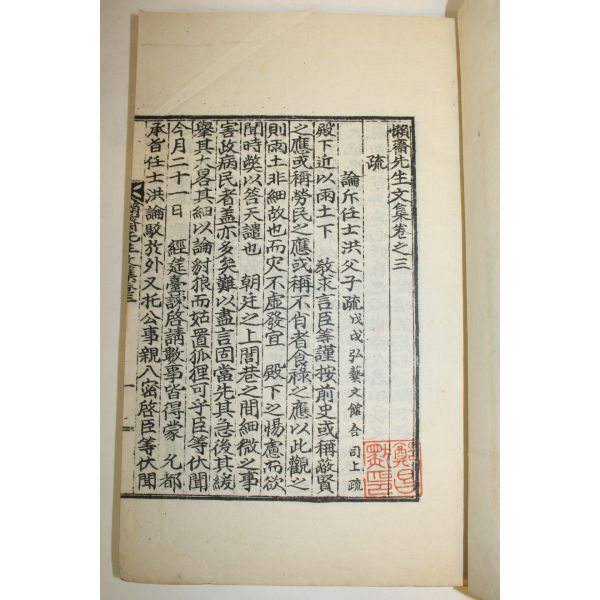 懶齋先生文集卷之三
疏
論斥任士洪父子疏 戊戌 弘藝文館合司上疏
殿下近以雨土下 教求言臣等謹按前史或稱蔽賢
之應或稱勞民之應或稱不肖者食祿之應以此觀之
則雨土非細故也而灾不虛發宜 殿下之惕慮而欲
聞時弊以答天譴也 朝廷之上閭巷之間細微之事
害政病民者盖亦多矣難以盡言固當先其急後其緩
舉其大畧其細以論豺狼而姑置狐狸可乎臣等伏聞
今月二十一日 經筵臺諫啓請數事皆得蒙 允都
承旨任士洪論駁於外又托公事親入密啓臣等伏聞
懶齋先生文集卷三
一